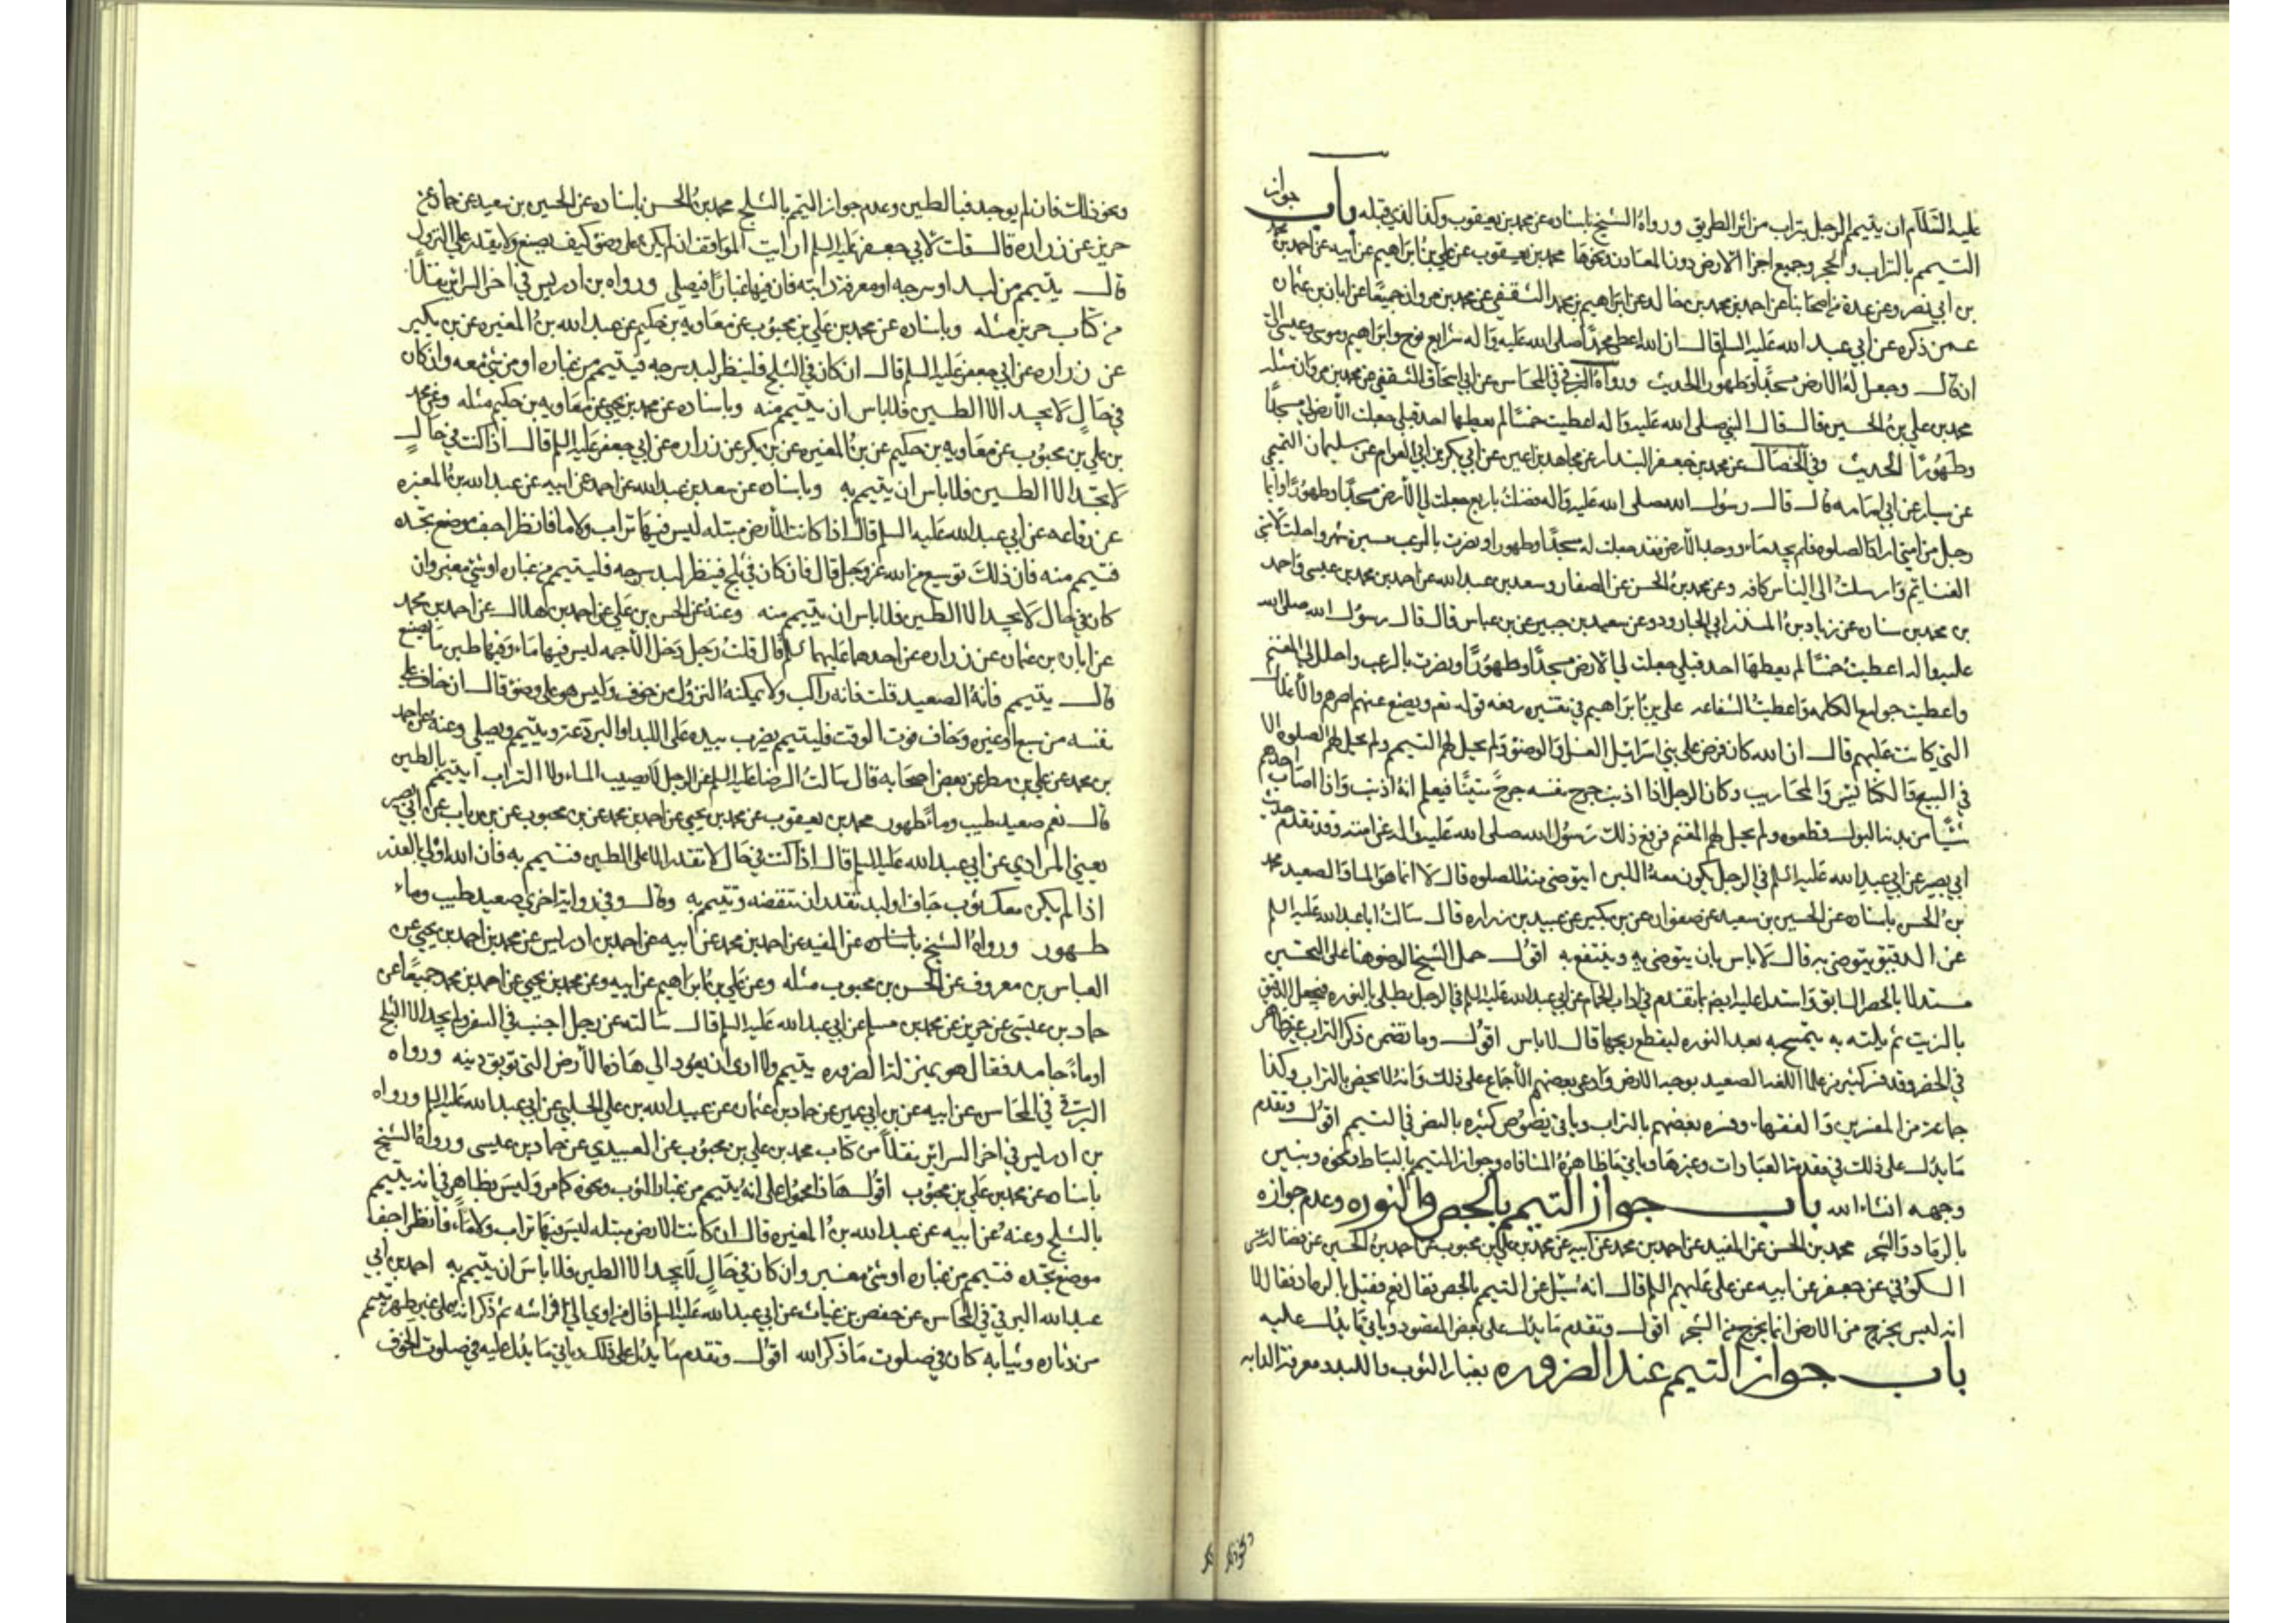 عليه السلام ان يتيمم الرجل بتراب من اثر الطريق ورواه الشيخ باسناده عن محمد بن يعقوب وكذا الذي قبله باب جواز
التيمم بالتراب والحجر وجميع اجزا الارض دون المعادن ونحوها محمد بن يعقوب عن علي بن ابراهيم عن ابيه عن احمد بن محمد
بن ابي نصر وعن عدة من اصحابنا عن احمد بن محمد بن خالد عن ابراهيم بن محمد الثقفي عن محمد بن مروان جميعًا عن ابان بن عثمان
عمن ذكره عن ابي عبد الله عليه السلم قال ان الله اعطى محمدًا صلى الله عليه واله شرايع نوح وابراهيم وموسى وعيسى الى
ان قال وجعل له الارض مسجدًا وطهورا الحديث ورواه البرقي في المحاسن عن ابي اسحاق الثقفي عن محمد بن مروان مثله
محمد بن علي بن الحسين قال قال النبي صلى الله عليه واله اعطيت خمسًا لم يعطها احد قبلي جعلت لي الارض مسجدًا
وطهورًا الحديث وفي الخصال عن محمد بن جعفر البندار عن مجاهد بن اعين عن ابي بكر بن ابي العوام عن سليمان التميمي
عن سيار عن ابي امامه قال قال رسول الله صلى الله عليه واله فضلت باربع جعلت لي الأرض مسجدًا وطهورًا وايما
رجل من امتي اراد الصلوه فلم يجد ماء ووجد الأرض فقد جعلت له مسجدًا وطهورا ونصرت بالرعب مسيرة شهر واحلت لامتي
الغنايم وارسلت الى الناس كافه وعن محمد بن الحسن عن الصفار وسعد بن عبد الله عن احمد بن محمد بن عيسى واحمد
بن محمد بن سنان عن زياد بن المنذر ابي الجارود وعن سعيد بن جبير عن بن عباس قال قال رسول الله صلى الله
عليه واله اعطيت خمسًا لم يعطها احد قبلي جعلت لي الارض مسجدًا وطهورًا ونصرت بالرعب واحل لي المغنم
واعطيت جوامع الكلم واعطيت الشفاعه علي بن ابراهيم في تفسيره رفعه قوله تعم ويضع عنهم اصرهم والأغلال
التي كانت عليهم قال ان الله كان فرض على بني اسرائيل الغسل والوضوء ولم يحل لهم التيمم ولم يحل لهم الصلوه الا
في البيع والكنائس والمحاريب وكان الرجل اذا اذنب جرح نفسه جرحًا متينًا فيعلم انه اذنب واذا اصاب احدهم
شيئًا من بدنه البول قطعوه ولم يحل لهم المغنم فرفع ذلك رسول الله صلى الله عليه واله عن امته وقد تقدم حديث
ابي بصير عن ابي عبد الله عليه السلم في الرجل يكون معه اللبن ايتوضى منه للصلوه قال لا انما هو الماء والصعيد محمد
بن الحسن باسناده عن الحسين بن سعيد عن صفوان عن بن بكير عن عبيد بن زراره قال سالت ابا عبد الله عليه السلم
عن الدقيق يتوضى به قال لا باس بان يتوضى به وينتفع به اقول حمل الشيخ الوضوء هنا على التحسين
مستدلا بالحصر السابق واستدل عليه ايضم بما تقدم في اداب الحمام عن ابي عبد الله عليه السلم في الرجل يطلى بالنوره فيجعل الدقيق
بالزيت ثم يلته به يتمسح به بعد النوره ليقطع ريحها قال لا باس اقول وما تضمن ذكر التراب غير ظاهر
في الحصر وقد فسر كثير من علما اللغه الصعيد بوجه الارض وادعى بعضهم الأجماع على ذلك وانه لا يختص بالتراب وكذا
جماعة من المفسرين والفقهاء وفسره بعضهم بالتراب وياتي نصوص كثيره بالنص في التيمم اقول وتقدم
ما يدل على ذلك في مقدمة العبادات وغيرها وياتي ما ظاهره المنافاه وجواز التيمم بالبساط ونحوه ونبين
وجهه انشاء الله باب جواز التيمم بالجص والنوره وعدم جوازه
بالرماد والشجر محمد بن الحسن عن المفيد عن احمد بن محمد عن ابيه عن محمد بن علي بن محبوب عن احمد بن الحسين عن فضاله عن
السكوني عن جعفر عن ابيه عن علي عليهم السلم قال انه سئل عن التيمم بالجص فقال نعم فقيل بالرماد فقال لا
انه ليس يخرج من الارض انما يخرج من الشجر اقول وتقدم ما يدل على بعض المقصود وياتي ما يدل عليه
باب جواز التيمم عند الضروره بغبار الثوب واللبد ومعرفة الدابه
ونحو ذلك
ونحو ذلك فان لم يوجد فبالطين وعدم جواز التيمم بالثلج محمد بن الحسن باسناده عن الحسين بن سعيد عن حماد عن
حريز عن زراره قال قلت لابي جعفر عليه السلم ارايت المواقف ان لم يكن على وضوء كيف يصنع ولا يقدر على النزول
قال يتيمم من لبد او سرجه او معرفة دابته فان فيها غبارًا فيصلي ورواه بن ادريس في اخر السرائر نقلًا
من كتاب حريز مثله وباسناده عن محمد بن علي بن محبوب عن معاويه بن حكيم عن عبد الله بن المغيره عن بن بكير
عن زراره عن ابي جعفر عليه السلم قال ان كان في الثلج فلينظر لبد سرجه فيتيمم من غباره او من شئ معه وان كان
في حال لا يجد الا الطين فلا باس ان يتيمم منه وباسناده عن محمد بن يحيى عن معاويه بن حكيم مثله وعن محمد
بن علي بن محبوب عن معاويه بن حكيم عن بن المغيره عن بن بكير عن زراره عن ابي جعفر عليه السلم قال اذا كنت في حال
لا تجد الا الطين فلا باس ان يتيمم به وباسناده عن سعد بن عبد الله عن احمد عن ابيه عن عبد الله بن المغيره
عن رفاعه عن ابي عبد الله عليه السلم قال اذا كانت الأرض مبتله ليس فيها تراب ولا ما فانظر اجف موضع تجده
فتيمم منه فان ذلك توسيع من الله عز وجل قال فان كان في ثلج فينظر لبد سرجه فليتيمم من غباره او شئ مغبر وان
كان في حال لا يجد الا الطين فلا باس ان يتيمم منه وعنه عن الحسن بن علي عن احمد بن هلال عن احمد بن محمد
عن ابان بن عثمان عن زراره عن احدهما عليهما السلم قال قلت رجل دخل الأجمه ليس فيها ماء وفيها طين ما يصنع
قال يتيمم فانه الصعيد قلت فانه راكب ولا يمكنه النزول من خوف وليس هو على وضوء قال ان خاف على
نفسه من سبع او غيره وخاف فوت الوقت فليتيمم يضرب بيده على اللبد او البرذعه ويتيمم ويصلي وعنه عن احمد
بن محمد عن علي بن مطر عن بعض اصحابه قال سالت الرضا عليه السلم عن الرجل لا يصيب الماء ولا التراب ايتيمم بالطين
قال نعم صعيد طيب وماء طهور محمد بن يعقوب عن محمد بن يحيى عن احمد بن محمد عن بن محبوب عن بن رباب عن ابي بصير
يعني المرادي عن ابي عبد الله عليه السلم قال اذا كنت في حال لا تقدر الا على الطين فتيمم به فان الله اولى بالعذر
اذا لم يكن معك ثوب جاف او لبد تقدر ان تنفضه وتتيمم به وقال وفي رواية اخرى صعيد طيب وماء
طهور ورواه الشيخ باسناده عن المفيد عن احمد بن محمد عن ابيه عن احمد بن ادريس عن محمد بن احمد بن يحيى عن
العباس بن معروف عن الحسن بن محبوب مثله وعن علي بن ابراهيم عن ابيه وعن محمد بن يحيى عن احمد بن محمد جميعًا عن
حماد بن عيسى عن حريز عن محمد بن مسلم عن ابي عبد الله عليه السلم قال سالته عن رجل اجنب في السفر ولم يجد الا الثلج
او ماءً جامد فقال هو بمنزلة الضروره يتيمم ولا ارى ان يعود الى هذه الأرض التي توبق دينه ورواه
البرقي في المحاسن عن ابيه عن بن ابي عمير عن حماد بن عثمان عن عبيد الله بن علي الحلبي عن ابي عبد الله عليه السلم ورواه
بن ادريس في اخر السرائر نقلًا من كتاب محمد بن علي بن محبوب عن العبيدي عن حماد بن عيسى ورواه الشيخ
باسناده عن محمد بن علي بن محبوب اقول هذا محمول على انه يتيمم من غبار الثوب ونحوه كما مر وليس بظاهر في انه يتيمم
بالثلج وعنه عن ابيه عن عبد الله بن المغيره قال ان كانت الارض مبتله ليس فيها تراب ولا ماء فانظر اجف
موضع تجده فتيمم من غباره او شئ مغبر وان كان في حال لا يجد الا الطين فلا باس ان يتيمم به احمد بن ابي
عبد الله البرقي في المحاسن عن حفص بن غياث عن ابي عبد الله عليه السلم قال من اوى الى فراشه ثم ذكر انه على غير طهر تيمم
من دثاره وثيابه كان في صلوت ما ذكر الله اقول وتقدم ما يدل على ذلك وياتي ما يدل عليه في صلوت الخوف